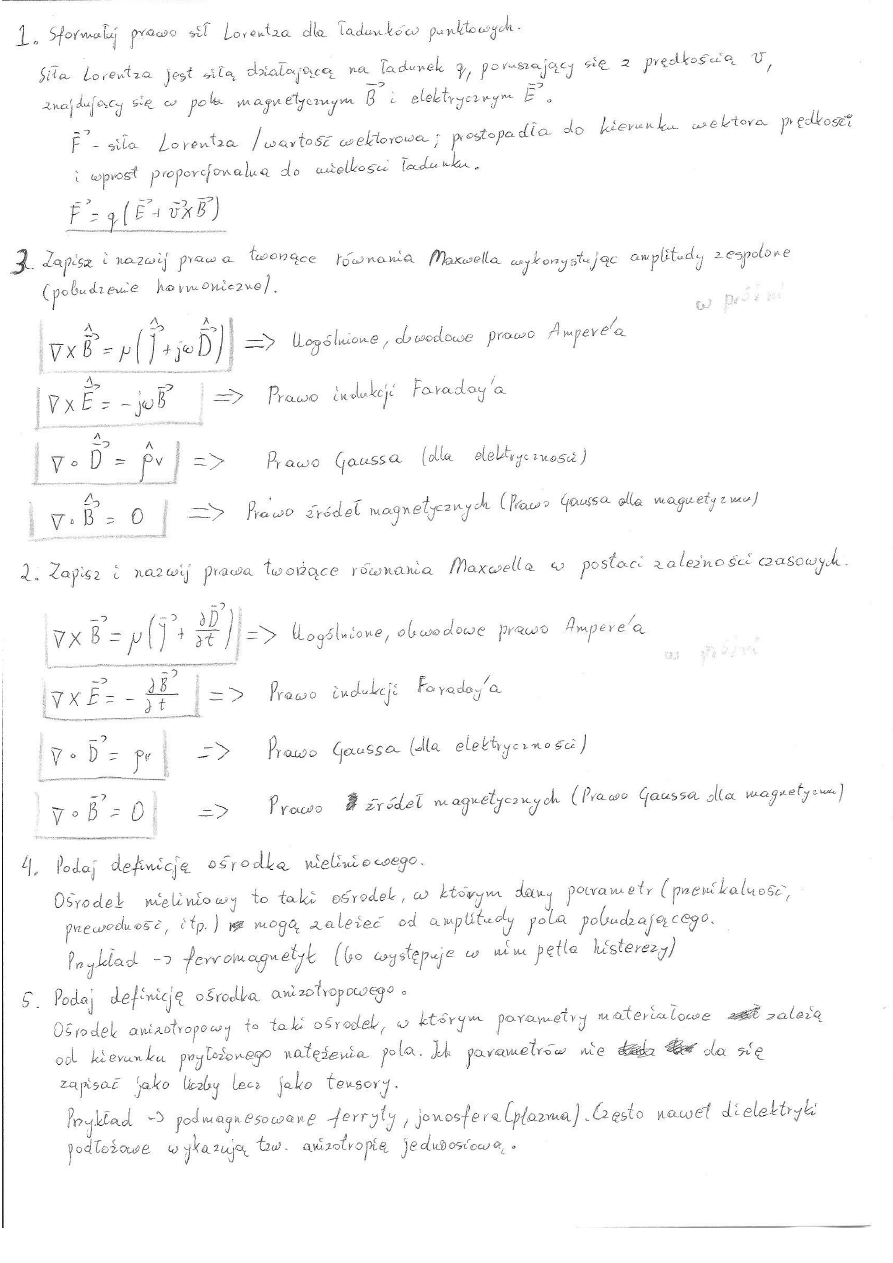 1. Sformułuj prawo sił Lorentza dla ładunków punktowych.
Siła Lorentza jest siłą działającą na ładunek q, poruszający się z prędkością v,
znajdujący się w polu magnetycznym B⃗ i elektrycznym E⃗.
F⃗ - siła Lorentza /wartość wektorowa; prostopadła do kierunku wektora prędkości
i wprost proporcjonalna do wielkości ładunku.
F⃗ = q(E⃗ + v⃗ × B⃗)
3. Zapisz i nazwij prawa tworzące równania Maxwella wykorzystując amplitudy zespolone
(pobudzenie harmoniczne).
w próżni
∇ × B̂⃗ = μ(Ĵ⃗ + jω D̂⃗) => Uogólnione, obwodowe prawo Ampere'a
∇ × Ê⃗ = -jω B⃗ => Prawo indukcji Faraday'a
∇ ∘ D̂⃗ = ρ̂v => Prawo Gaussa (dla elektryczności)
∇ ∘ B̂⃗ = 0 => Prawo źródeł magnetycznych (Prawo Gaussa dla magnetyzmu)
2. Zapisz i nazwij prawa tworzące równania Maxwella w postaci zależności czasowych.
∇ × B⃗ = μ(J⃗ + ∂D⃗/∂t) => Uogólnione, obwodowe prawo Ampere'a
w próżni
∇ × E⃗ = - ∂B⃗/∂t => Prawo indukcji Faraday'a
∇ ∘ D⃗ = ρv => Prawo Gaussa (dla elektryczności)
∇ ∘ B⃗ = 0 => Prawo źródeł magnetycznych (Prawo Gaussa dla magnetyzmu)
4. Podaj definicję ośrodka nieliniowego.
Ośrodek nieliniowy to taki ośrodek, w którym dany parametr (przenikalność,
przewodność, itp.) mogą zależeć od amplitudy pola pobudzającego.
Przykład -> ferromagnetyk (bo występuje w nim pętla histerezy)
5. Podaj definicję ośrodka anizotropowego.
Ośrodek anizotropowy to taki ośrodek, w którym parametry materiałowe zależą
od kierunku przyłożonego natężenia pola. Ich parametrów nie da się
zapisać jako liczby lecz jako tensory.
Przykład -> podmagnesowane ferryty, jonosfera (plazma). Często nawet dielektryki
podłożowe wykazują tzw. anizotropię jednoosiową.